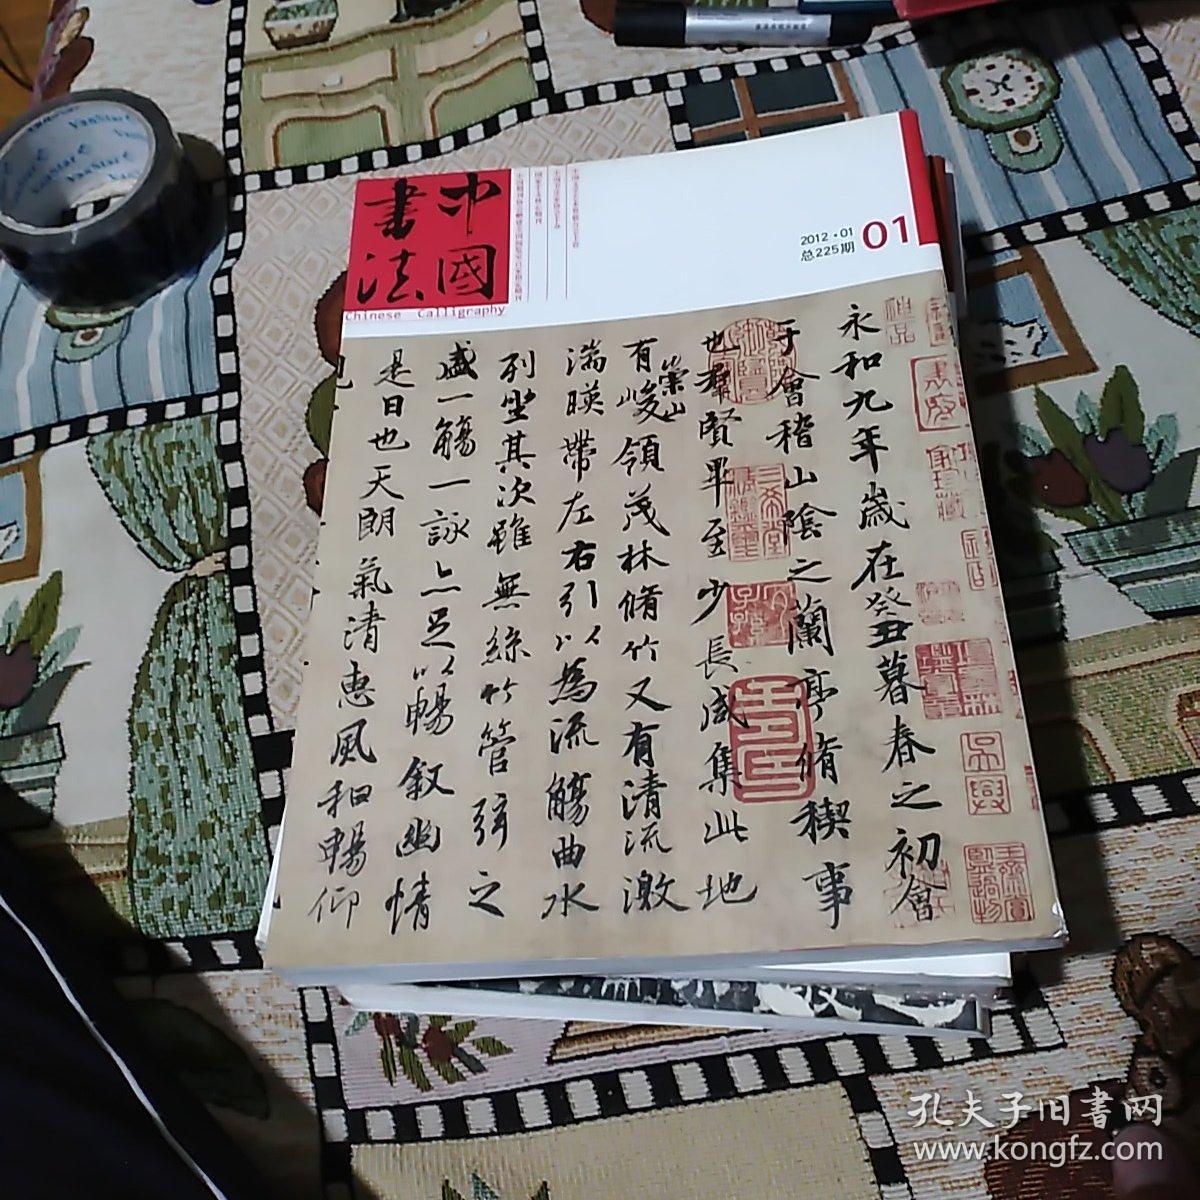 中国
書法
Chinese Calligraphy
2012·01
总225期
01
永和九年歲在癸丑暮春之初會
于會稽山陰之蘭亭脩稧事
也羣賢畢至少長咸集此地
有崇山峻領茂林脩竹又有清流激
湍暎帶左右引以為流觴曲水
列坐其次雖無絲竹管弦之
盛一觴一詠亦足以暢敘幽情
是日也天朗氣清惠風和暢仰
VanStar
孔夫子旧書网
www.kongfz.com